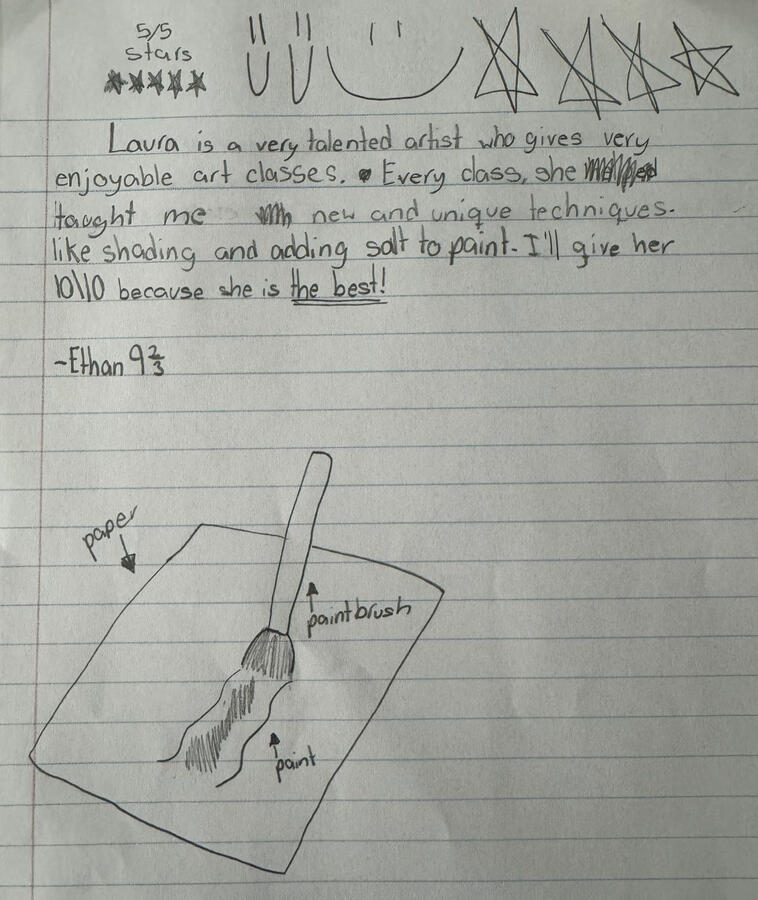 5/5
stars
Laura is a very talented artist who gives very
enjoyable art classes. Every class, she
taught me new and unique techniques.
like shading and adding salt to paint. I'll give her
10\10 because she is the best!
~Ethan 9 2/3
paper
paintbrush
paint